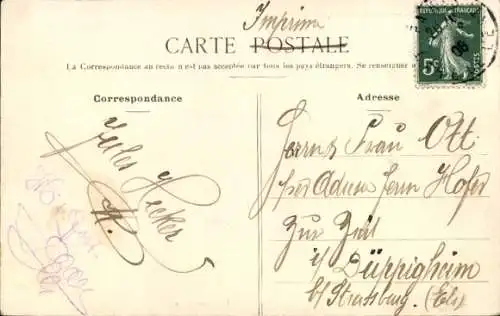 Imprimé
CARTE POSTALE
La Correspondance au recto n'est pas acceptée par tous les pays étrangers. Se renseigner
RÉPUBLIQUE FRANÇAISE
5c
POSTES
08
Correspondance
Adresse
Jules Hecker
Herrn & Frau Ott.
per Adresse Herrn Hofer
Zur Zeit
i/ Düppigheim
b/ Strassburg. (Els)